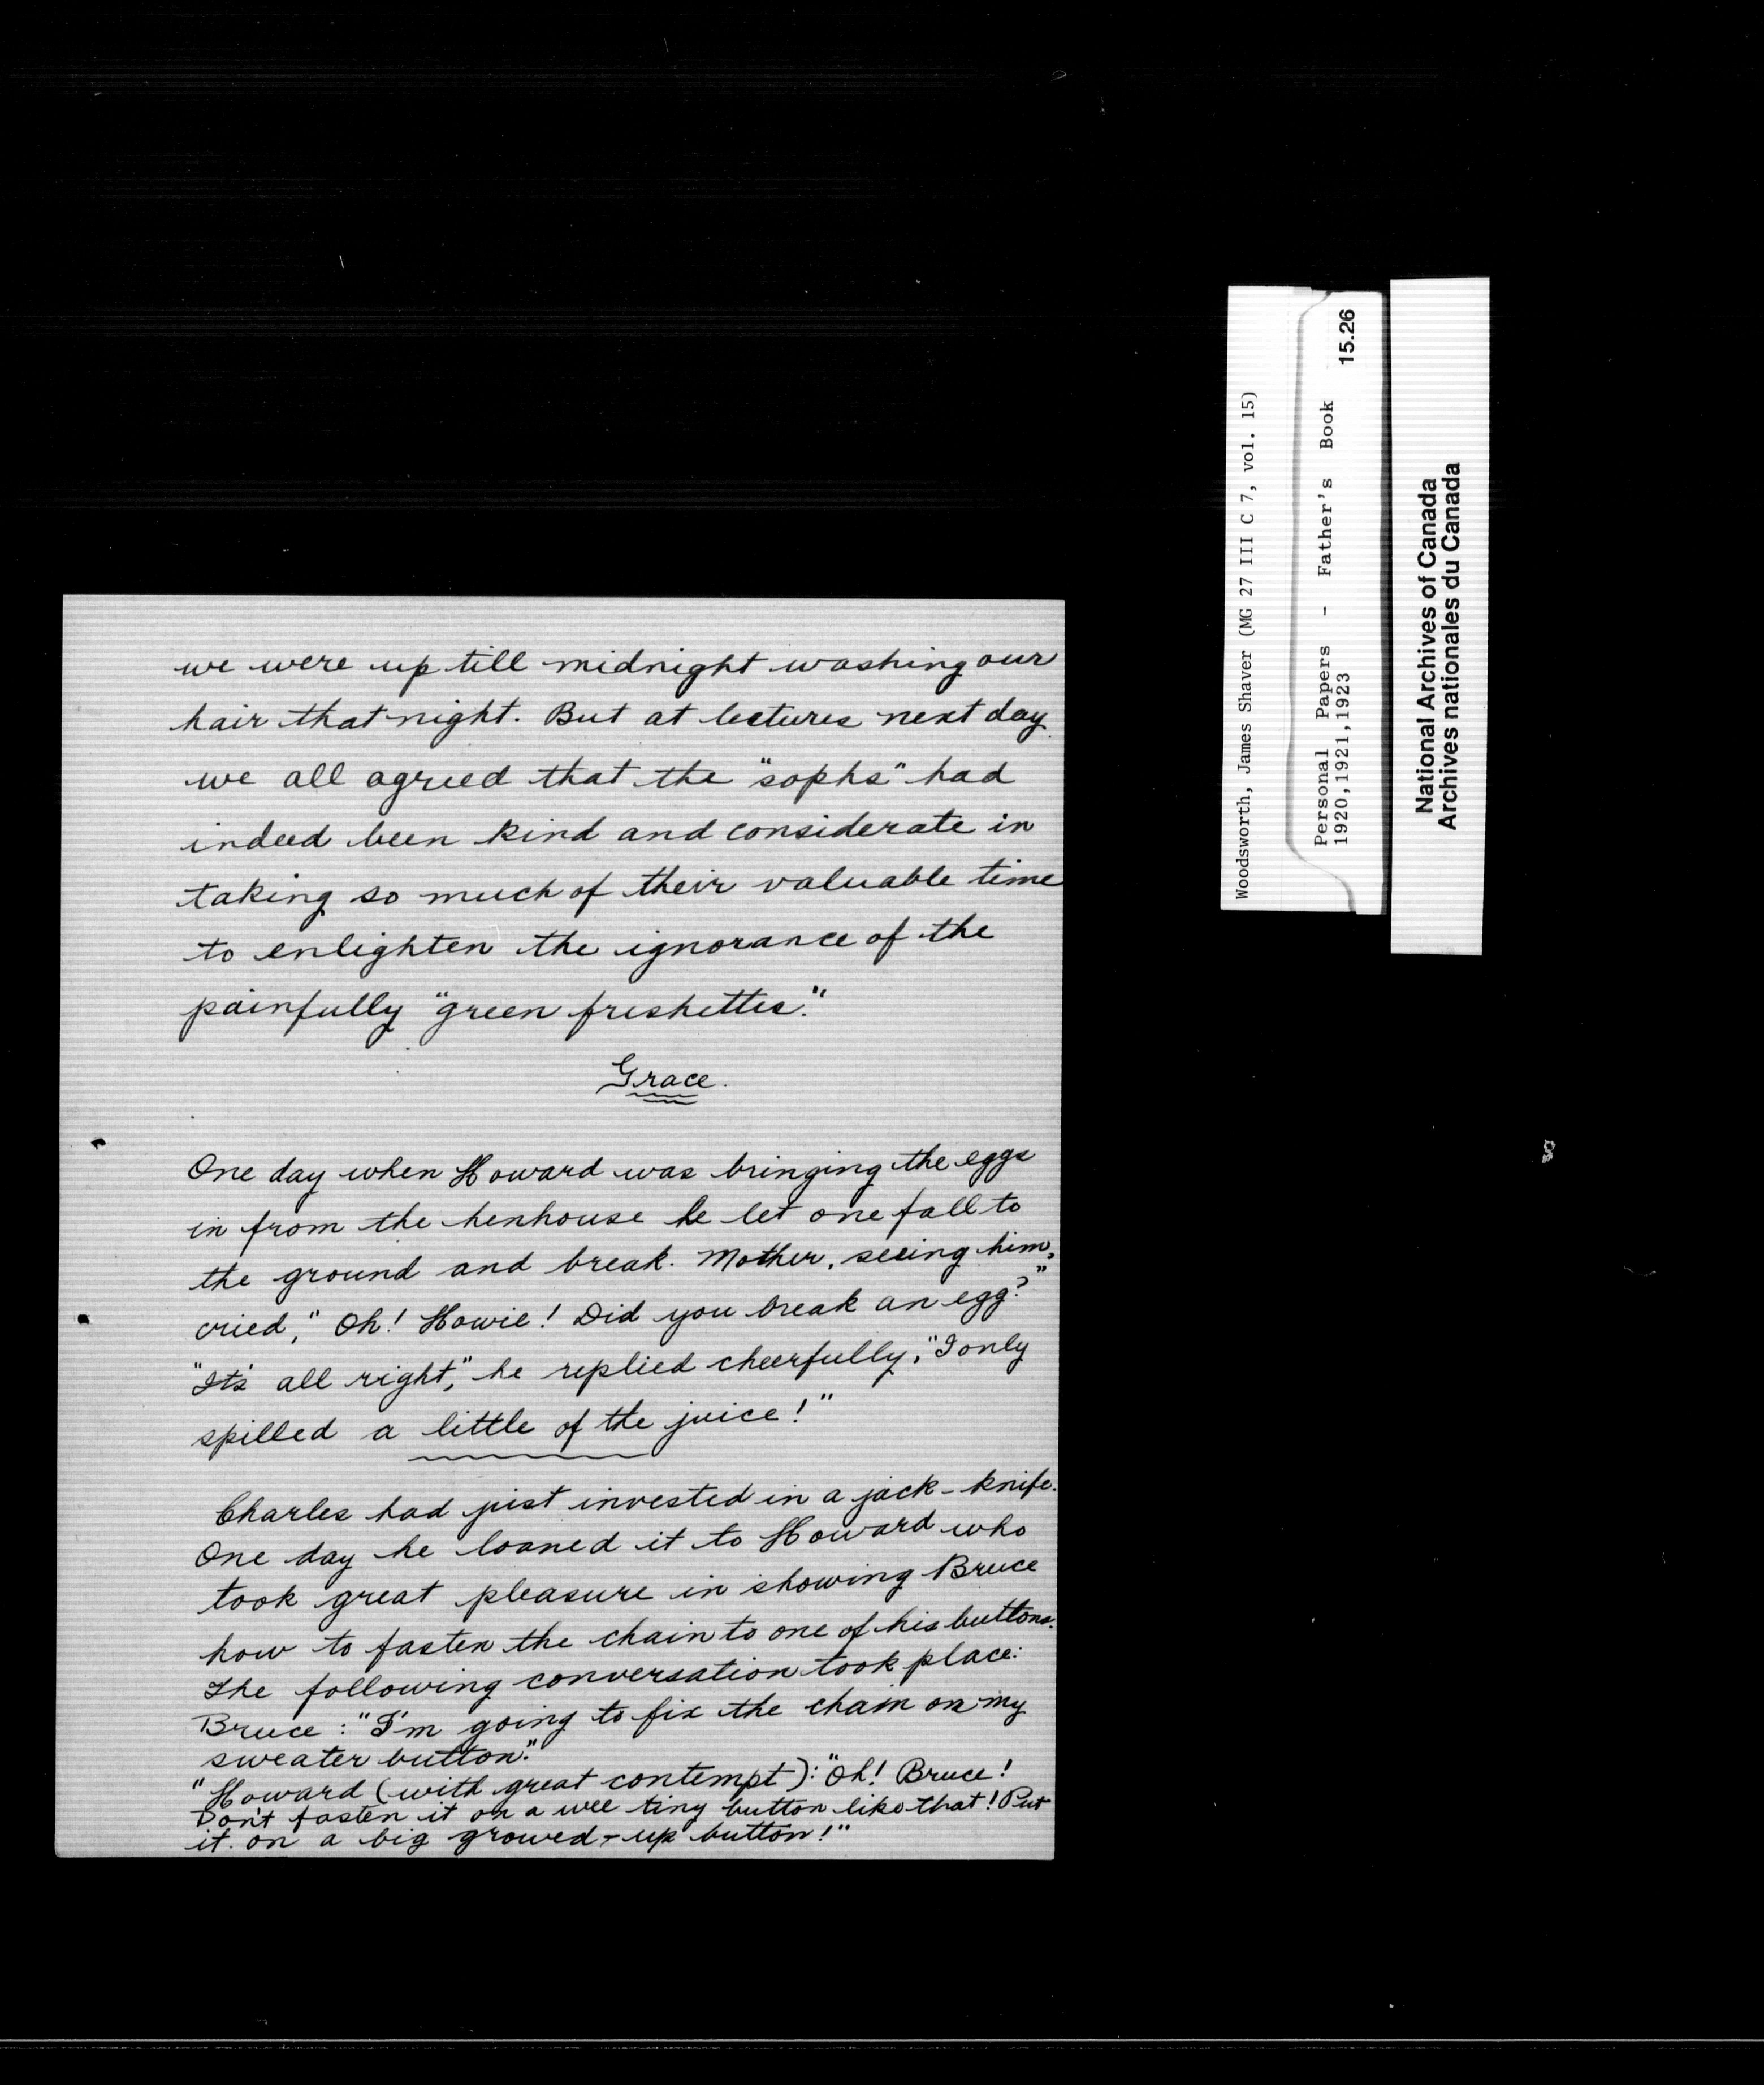 we were up till midnight washing our
hair that night. But at lectures next day
we all agreed that the "sophs" had
indeed been kind and considerate in
taking so much of their valuable time
to enlighten the ignorance of the
painfully "green freshettes."
Grace.
One day when Howard was bringing the eggs
in from the henhouse he let one fall to
the ground and break. Mother, seeing him,
cried, "Oh! Howie! Did you break an egg?"
"It's all right," he replied cheerfully, "I only
spilled a little of the juice!"
Charles had just invested in a jack-knife.
One day he loaned it to Howard who
took great pleasure in showing Bruce
how to fasten the chain to one of his buttons.
The following conversation took place:
Bruce: "I'm going to fix the chain on my
sweater button."
"Howard (with great contempt): "Oh! Bruce!
Don't fasten it on a wee tiny button like that! Put
it on a big growed-up button!"
Woodsworth, James Shaver (MG 27 III C 7, vol. 15)
Personal Papers - Father's Book 15.26
1920,1921,1923
National Archives of Canada
Archives nationales du Canada